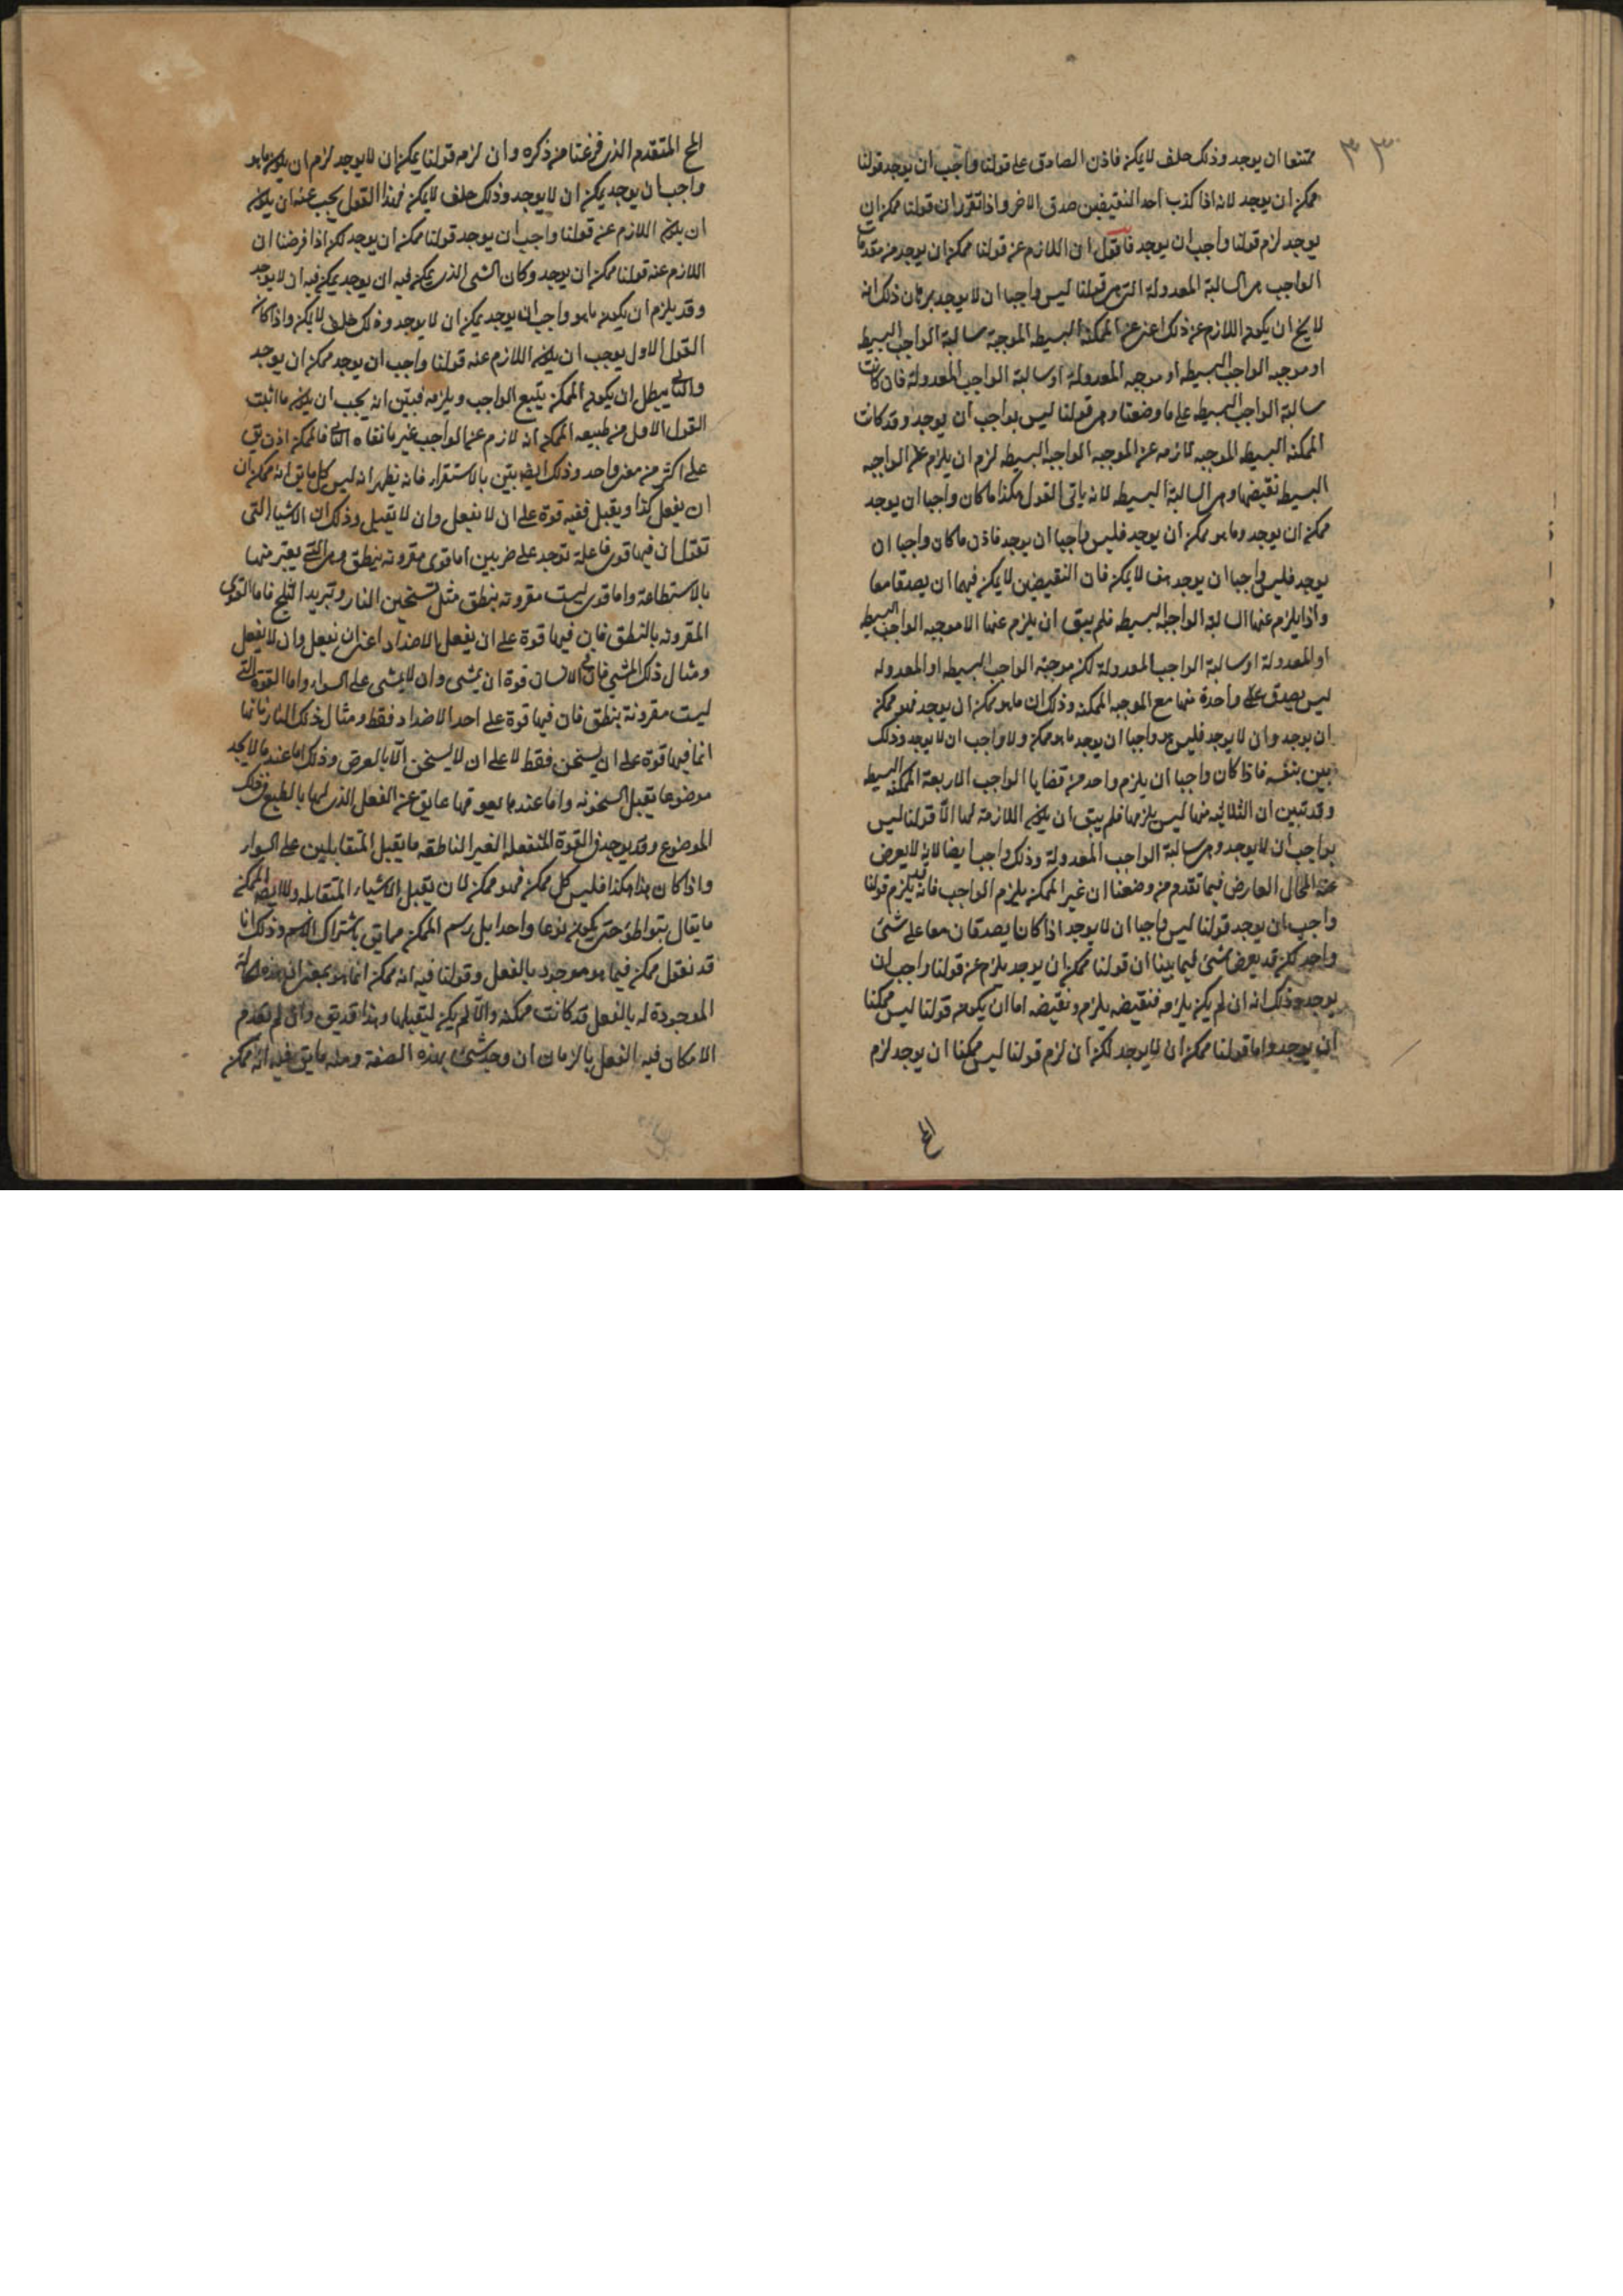 ٣٣
ممتنعا ان يوجد وذلك خلف لا يمكن فاذن الصادق على قولنا واجب ان يوجد قولنا
ممكن ان يوجد لانه اذا كذب احد النقيضين صدق الاخر واذا تقرر ان قولنا ممكن ان
يوجد لزم قولنا واجب ان يوجد فاقول ان اللازم عن قولنا ممكن ان يوجد من مقدمات
الواجب هى السالبة المعدولة التى هى قولنا ليس واجبا ان لا يوجد برهان ذلك انه
لا يخ ان يكون اللازم عن ذلك اعنى عن الممكنة البسيطه الموجبة سالبة الواجب البسيط
او موجبه الواجب البسيطه او موجبه المعدولة او سالبة الواجب المعدولة فان كانت
سالبة الواجب البسيط على ما وضعنا وهى قولنا ليس بواجب ان يوجد وقد كانت
الممكنة البسيط الموجبه لازمه عن الموجبه الواجبة البسيطه لزم ان يلزم عن الواجبه
البسيط نقيضها وهى السالبة البسيط لانه ياتى القول هكذا ما كان واجبا ان يوجد
ممكن ان يوجد وما هو ممكن ان يوجد فليس واجبا ان يوجد فاذن ما كان واجبا ان
يوجد فليس واجبا ان يوجد هف لا يمكن فان النقيضين لا يمكن فيهما ان يصدقا معا
واذا يلزم عنها السالبة الواجبة البسيطه فلم يبق ان يلزم عنها الا موجبه الواجب البسيط
او المعدولة او سالبة الواجب المعدولة لكن موجبة الواجب البسيطه او المعدوله
ليس يصدق على واحدة منها مع الموجبه الممكنه وذلك ان ما هو ممكن ان يوجد فهو ممكن
ان يوجد وان لا يوجد فليس هو واجبا ان يوجد ما هو ممكن ولا واجب ان لا يوجد وذلك
بين بنفسه فاذا كان واجبا ان يلزم واحد من قضايا الواجب الاربعة الممكنه البسيط
وقد تبين ان الثلاثه منها ليس يلزمها فلم يبق ان يكون اللازمة لها الا قولنا ليس
بواجب ان لا يوجد وهى سالبة الواجب المعدولة وذلك واجب ايضا لانه لا يعرض
عنه المحال العارض فيما تقدم من وضعنا ان غير الممكن يلزم الواجب فانه ليس يلزم قولنا
واجب ان يوجد قولنا ليس واجبا ان لا يوجد اذا كان يصدقان معا على شئ
واحد لكن قد يعرض شئ فيما بينا ان قولنا ممكن ان يوجد يلزم عن قولنا واجب ان
يوجد وذلك انه ان لم يكن يلزمه فنقيضه يلزم ونقيضه اما ان يكون قولنا ليس ممكنا
ان يوجد واما قولنا ممكن ان لا يوجد لكن ان لزم قولنا ليس ممكنا ان يوجد لزم
المح
المح المتقدم الذى فرغنا من ذكره وان لزمه قولنا يمكن ان لا يوجد لزم ان يكون ما هو
واجب ان يوجد يمكن ان لا يوجد وذلك خلف لا يمكن فهذا القول يجب عنه ان يكون
ان يكون اللازم عن قولنا واجب ان يوجد قولنا ممكن ان يوجد لكن اذا فرضنا ان
اللازم عنه قولنا ممكن ان يوجد وكان الشى الذى يمكن فيه ان يوجد يمكن فيه ان لا يوجد
وقد يلزم ان يكون ما هو واجب ان يوجد يمكن ان لا يوجد وذلك خلف لا يمكن واذا كان
القول الاول يوجب ان يكون اللازم عنه قولنا واجب ان يوجد ممكن ان يوجد
والثانى يبطل ان يكون الممكن يتبع الواجب ويلزمه فبين انه يجب ان يكون ما اثبت
القول الاول من طبيعه الممكن انه لازم عن الواجب غير ما نفاه الثانى فالممكن اذن يق
على اكثر من معنى واحد وذلك ايض بين بالاستقراء فانه يظهر انه ليس كل ما يق انه ممكن ان
ان يفعل كذا ويقبل ففيه قوة على ان لا يفعل وان لا يقبل وذلك ان الاشياء التى
تقول ان فيها قوى فاعلة توجد على ضربين اما قوى مقرونه بنطق وهى التى يعبر عنها
بالاستطاعة واما قوى ليست مقرونه بنطق مثل تسخين النار وتبريد الثلج فاما القوى
المقرونه بالنطق فان فيها قوة على ان يفعل الاضداد اعنى ان يفعل وان لا يفعل
ومثال ذلك المشى فان فى الانسان قوة ان يمشى وان لا يمشى على السواء واما القوة التى
ليست مقرونة بنطق فان فيها قوة على احد الاضداد فقط ومثال ذلك النار فانها
انما فيها قوة على ان يسخن فقط لا على ان لا يسخن الا بالعرض وذلك اما عند ما لا يجد
موضوعا يقبل السخونه واما عند ما يعوقها عايق عن الفعل الذى لها بالطبع فى ذلك
الموضوع وقد يوجد فى القوة المنفعله الغير الناطقه ما يقبل المتقابلين على السواء
واذا كان هذا هكذا فليس كل ممكن فهو ممكن لان يقبل الاشياء المتقابله ولا ايضا الممكن
ما يقال بتواطؤ حتى يكون نوعا واحدا بل رسم الممكن مما يق باشتراك الاسم وذلك انا
قد نقول ممكن فيما هو موجود بالفعل وقولنا فيه انه ممكن انما هو بمعنى ان
الموجودة له بالفعل قد كانت ممكنه والا لم يكن ليقبلها وهذا قد يق وان لم يتقدم
الامكان فيه الفعل بالزمان ان وجد شئ بهذه الصفة ومنه ما يق فيه انه ممكن